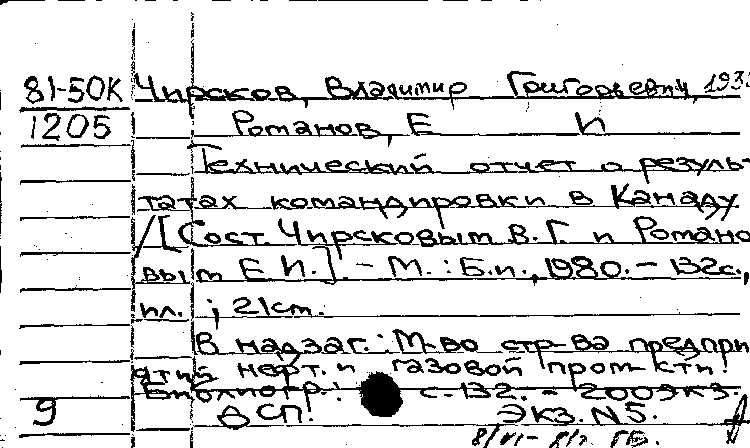 81-50К Чирсков, Владимир Григорьевич, 193
1205 Романов, Е И
Технический отчет о резуль-
татах командировки в Канаду
/[Сост. Чирсковым В.Г. и Романо
вым Е И.]. - М. : Б.и., 1980. - 132с.,
ил. ; 21см.
В надзаг.: М-во стр-ва предпри
ятий нефт. и газовой пром-сти.
Библиогр.: с. 132. - 200экз.
9 ДСП! Экз. N5.